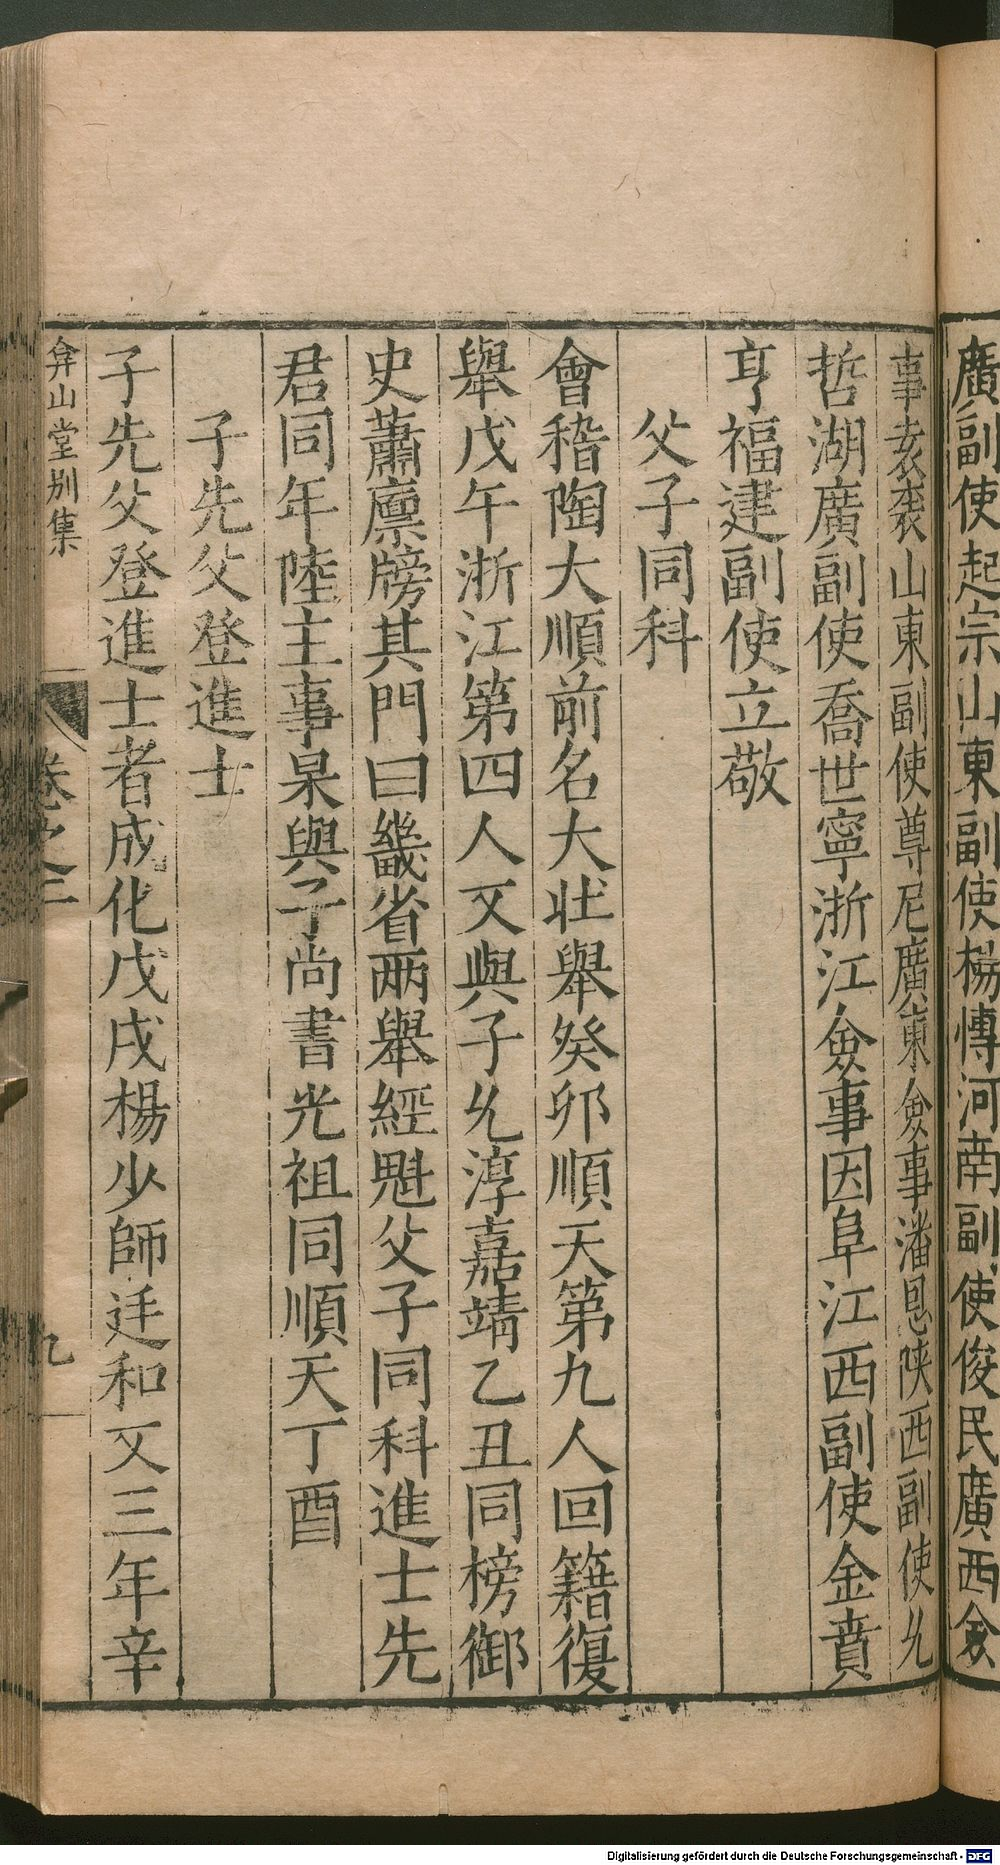 廣副使起宗山東副使楊博河南副使俊民廣西僉
事袁袠山東副使尊尼廣東僉事潘恩陝西副使允
哲湖廣副使喬世寧浙江僉事因阜江西副使金賁
亨福建副使立敬
父子同科
會稽陶大順前名大壯舉癸卯順天第九人回籍復
舉戊午浙江第四人又與子允淳嘉靖乙丑同榜御
史蕭廩牓其門曰畿省兩舉經魁父子同科進士先
君同年陸主事杲與子尚書光祖同順天丁酉
子先父登進士
子先父登進士者成化戊戌楊少師廷和又三年辛
弇山堂別集
卷之二
九
Digitalisierung gefördert durch die Deutsche Forschungsgemeinschaft - DFG